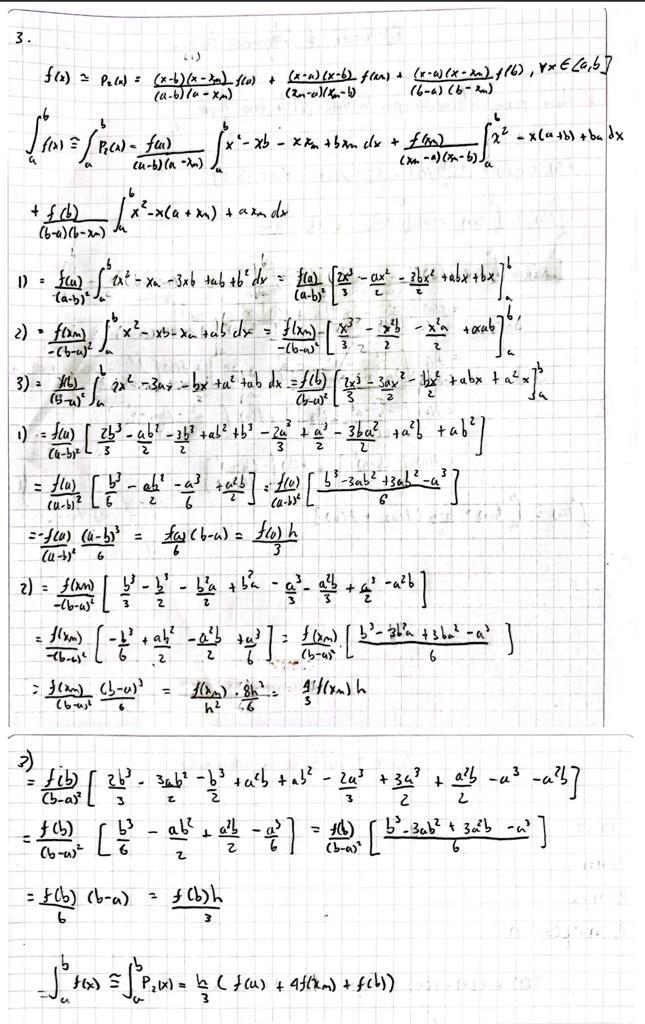 3.
f(x) ≅ P₂(x) = (x-b)(x-xₘ)/(a-b)(a-xₘ) f(a) + (x-a)(x-b)/(xₘ-a)(xₘ-b) f(xₘ) + (x-a)(x-xₘ)/(b-a)(b-xₘ) f(b), ∀x∈[a,b]
∫ₐᵇ f(x) ≅ ∫ₐᵇ P₂(x) = f(a)/(a-b)(a-xₘ) ∫ₐᵇ x² - xb - xxₘ + bxₘ dx + f(xₘ)/(xₘ-a)(xₘ-b) ∫ₐᵇ x² - x(a+b) + ba dx
+ f(b)/(b-a)(b-xₘ) ∫ₐᵇ x² - x(a+xₘ) + axₘ dx
1) = f(a)/(a-b)² ∫ₐᵇ 2x² - xa - 3xb + ab + b² dx = f(a)/(a-b)² [2x³/3 - ax²/2 - 3bx²/2 + abx + bx]ₐᵇ
2) = f(xₘ)/-(b-a)² ∫ₐᵇ x² - xb - xa + ab dx = f(xₘ)/-(b-a)² [x³/3 - x²b/2 - x²a/2 + xab]ₐᵇ
3) = f(b)/(b-a)² ∫ₐᵇ 2x² - 3ax - bx + a² + ab dx = f(b)/(b-a)² [2x³/3 - 3ax²/2 - bx²/2 + abx + a²x]ₐᵇ
1) = f(a)/(a-b)² [2b³/3 - ab²/2 - 3b³/2 + ab² + b³ - 2a³/3 + a³/2 - 3ba²/2 + a²b + ab²]
= f(a)/(a-b)² [b³/6 - ab²/2 - a³/6 + a²b/2] = f(a)/(a-b)² [b³ - 3ab² + 3ab² - a³/6]
= -f(a)/(a-b)² (a-b)³/6 = f(a)/6 (b-a) = f(a)h/3
2) = f(xₘ)/-(b-a)² [b³/3 - b³/2 - b²a/2 + b²a - a³/3 - a²b/3 + a³/2 - a²b]
= f(xₘ)/-(b-a)² [-b³/6 + ab²/2 - a²b/2 + a³/6] = f(xₘ)/(b-a)² [b³ - 3b²a + 3ba² - a³/6]
= f(xₘ)/(b-a)² (b-a)³/6 = f(xₘ)/h² · 8h³/6 = 4/3 f(xₘ)h
3)
= f(b)/(b-a)² [2b³/3 - 3ab²/2 - b³/2 + a²b + ab² - 2a³/3 + 3a³/2 + a²b/2 - a³ - a²b]
= f(b)/(b-a)² [b³/6 - ab²/2 + a²b/2 - a³/6] = f(b)/(b-a)² [b³ - 3ab² + 3a²b - a³/6]
= f(b)/6 (b-a) = f(b)h/3
= ∫ₐᵇ f(x) ≅ ∫ₐᵇ P₂(x) = h/3 (f(a) + 4f(xₘ) + f(b))